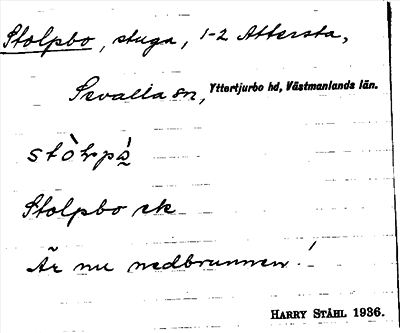 Stolpbo, stuga, 1-2 Attersta,
Sevalla sn, Yttertjurbo hd, Västmanlands län.
Stolpbo ek
Är nu nedbrunnen!
HARRY STÅHL 1936.